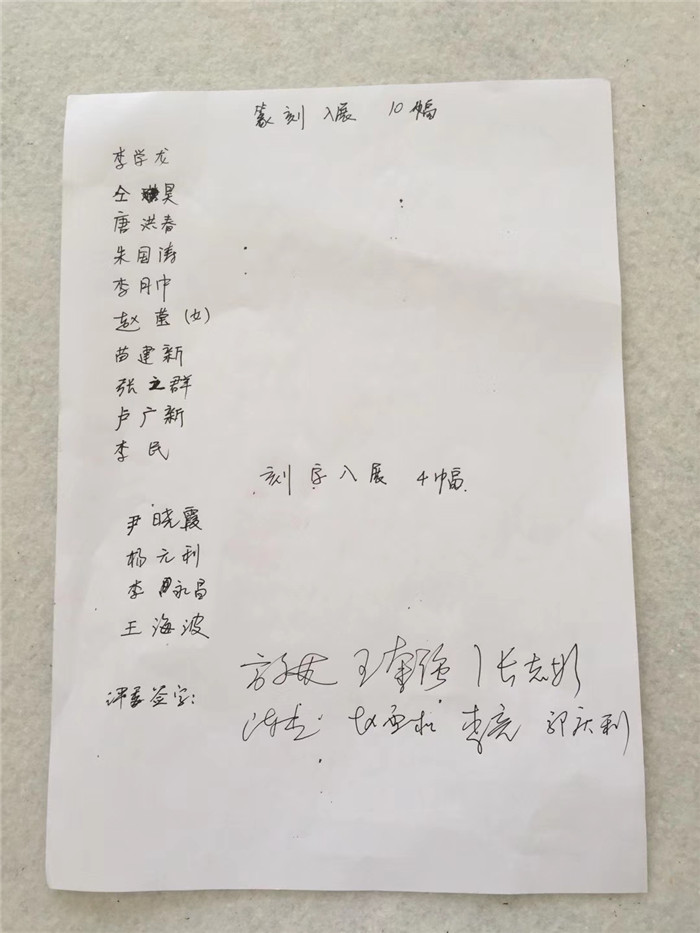 篆刻入展 10幅
李学龙
仝昊
唐洪春
朱国涛
李月中
赵莹(女)
苗建新
张立群
卢广新
李民
刻字入展 4幅
尹晓霞
杨元利
李永昌
王海波
评委签字:
王奎强 张志彬
李亮 郭庆利